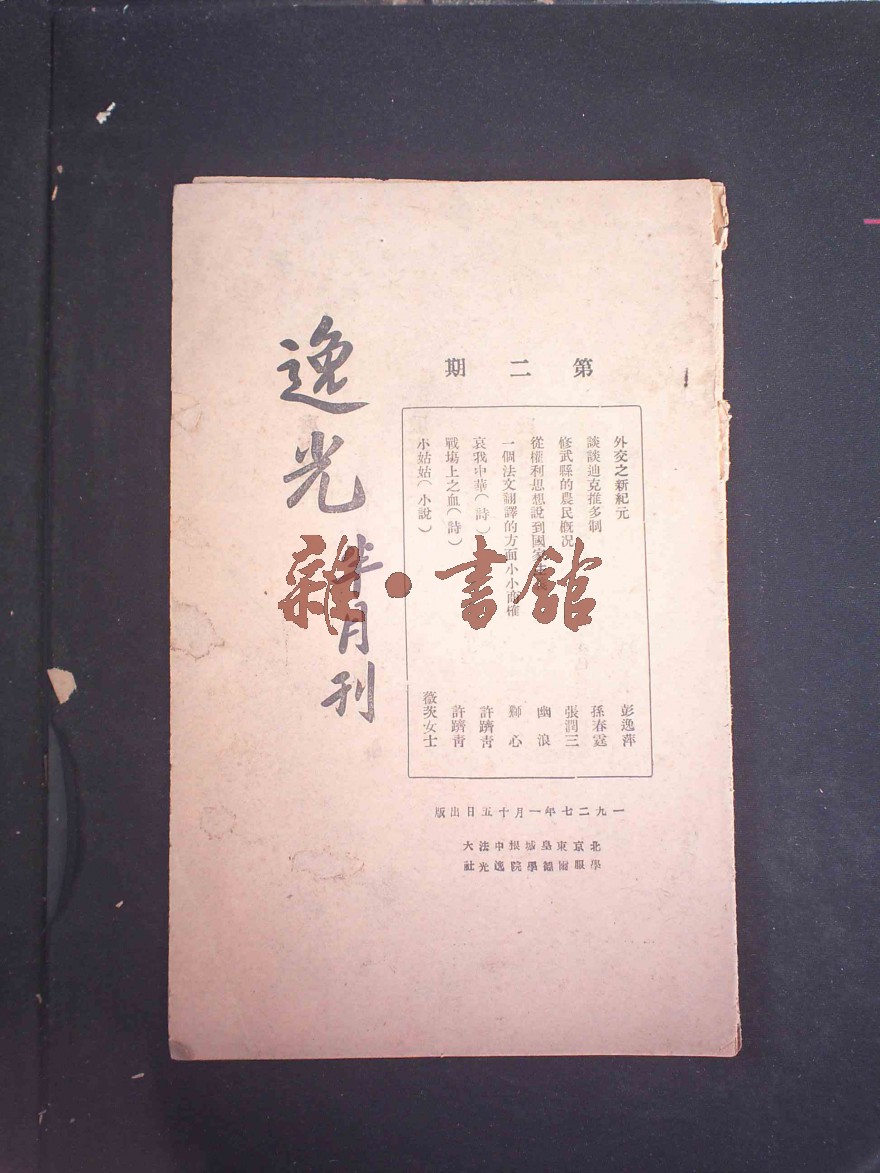 逸光半月刊
第二期
外交之新紀元 彭逸萍
談談迪克推多制 孫春霆
修武縣的農民概况 張潤三
從權利思想說到國家 幽浪
一個法文翻譯的方面小小商榷 獅心
哀我中華(詩) 許躋靑
戰塲上之血(詩) 許躋靑
小姑姑(小說) 薇茨女士
一九二七年一月十五日出版
北京東皇城根中法大
學服爾德學院逸光社
雜·書館